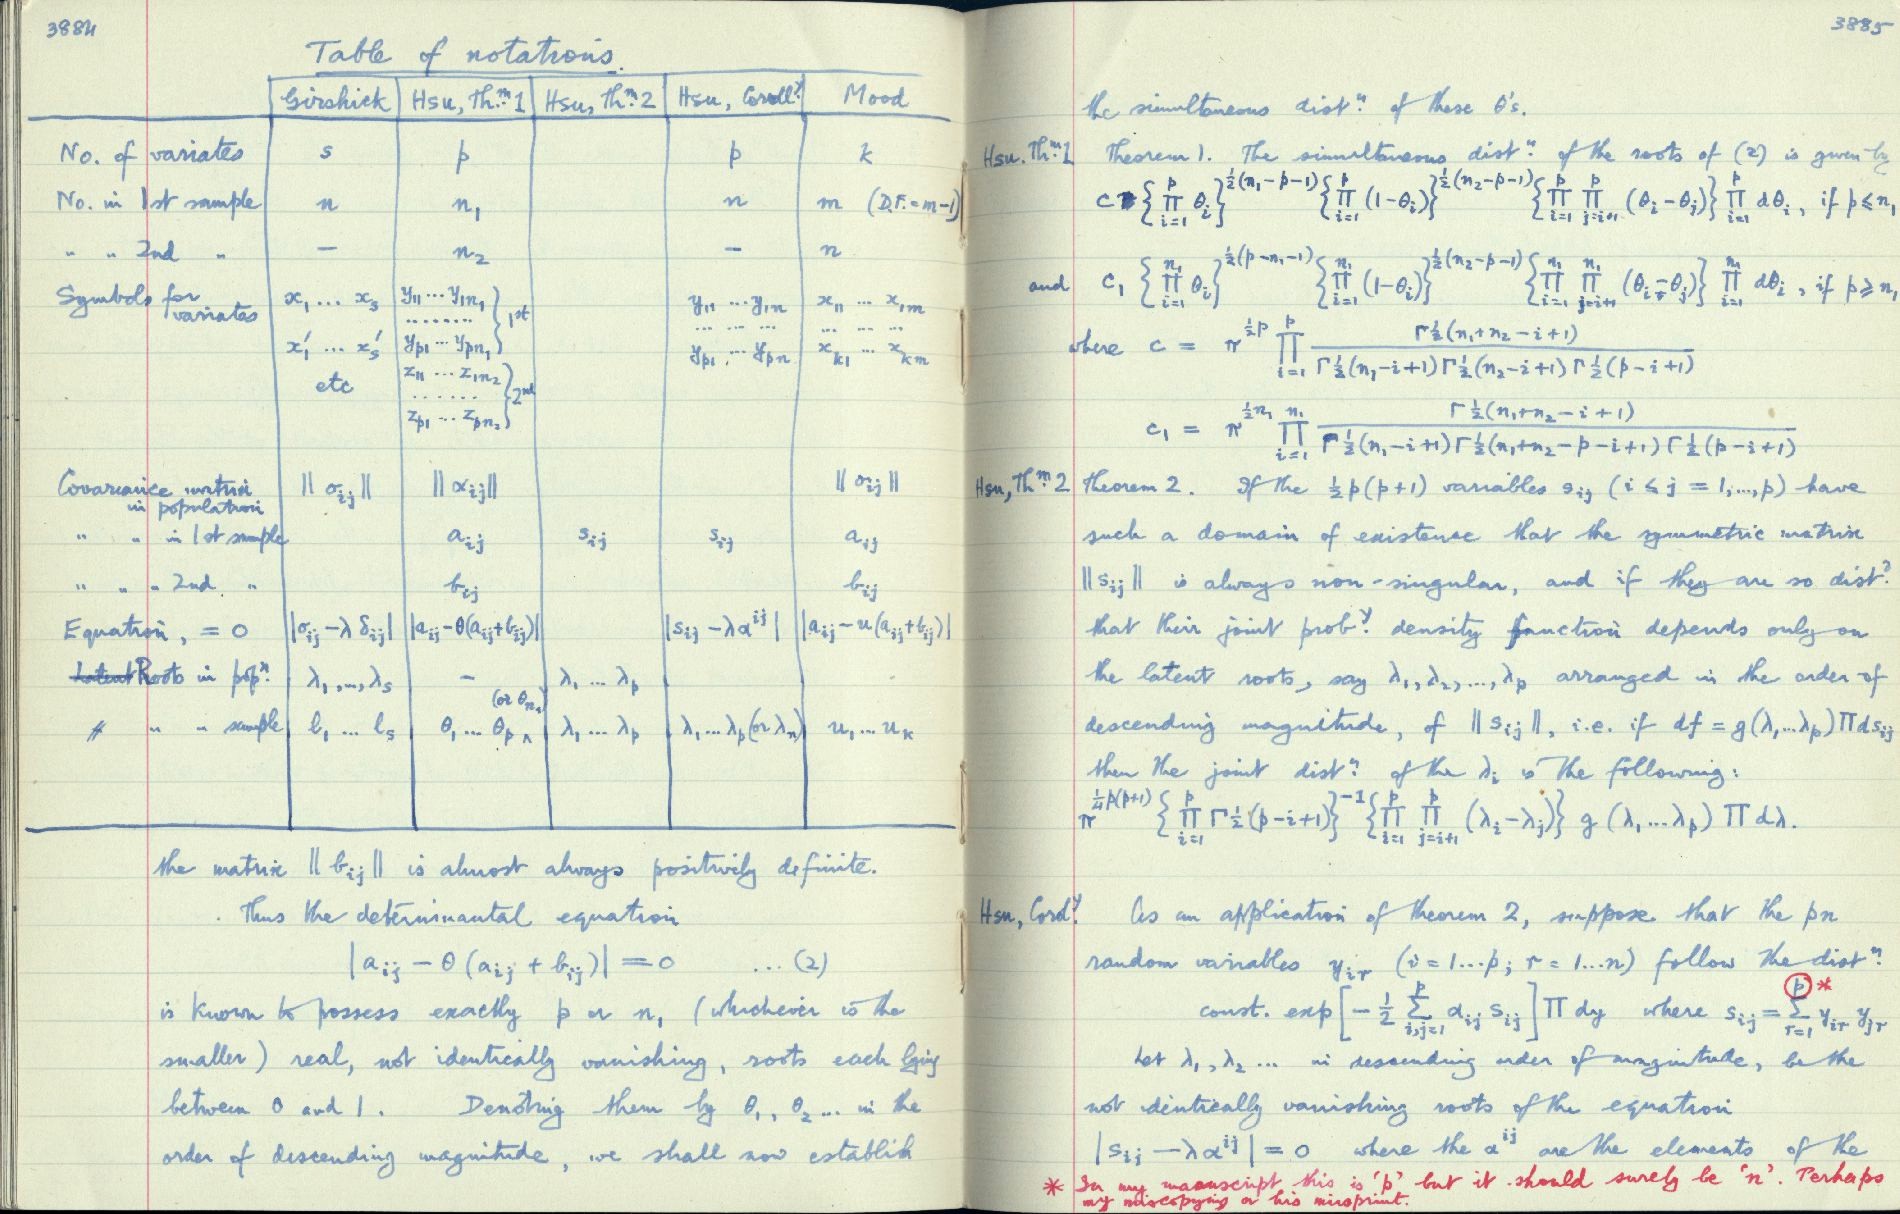 3884
Table of notations.
Girshick | Hsu, Th.ᵐ 1 | Hsu, Th.ᵐ 2 | Hsu, Coroll.ʸ | Mood
No. of variates | s | p | | p | k
No. in 1st sample | n | n₁ | | n | m (D.F. = m-1)
" " 2nd " | — | n₂ | | — | n
Symbols for variates | x₁ ... xₛ | y₁₁ ... y₁ₙ₁ } 1st | | y₁₁ ... y₁ₙ | x₁₁ ... x₁ₘ
........ | | ... ... ... | ... ... ...
x₁' ... xₛ' | yₚ₁ ... yₚₙ₁ | | yₚ₁ ... yₚₙ | xₖ₁ ... xₖₘ
etc | z₁₁ ... z₁ₙ₂ } 2nd
.......
zₚ₁ ... zₚₙ₂
Covariance matrix in population | ||σᵢⱼ|| | ||αᵢⱼ|| | | | ||σᵢⱼ||
" " in 1st sample | | aᵢⱼ | sᵢⱼ | sᵢⱼ | aᵢⱼ
" " " 2nd " | | bᵢⱼ | | | bᵢⱼ
Equation, = 0 | |σᵢⱼ - λδᵢⱼ| | |aᵢⱼ - θ(aᵢⱼ + bᵢⱼ)| | | |sᵢⱼ - λαⁱʲ| | |aᵢⱼ - u(aᵢⱼ + bᵢⱼ)|
Latent Roots in pop.ⁿ | λ₁, ..., λₛ | — | λ₁ ... λₚ
" " sample | l₁ ... lₛ | θ₁ ... θₚ (or θₙ₁) | λ₁ ... λₚ | λ₁ ... λₚ (or λₙ) | u₁ ... uₖ
the matrix ||bᵢⱼ|| is almost always positively definite.
Thus the determinantal equation
|aᵢⱼ - θ(aᵢⱼ + bᵢⱼ)| = 0 ... (2)
is known to possess exactly p or n₁ (whichever is the
smaller) real, not identically vanishing, roots each lying
between 0 and 1. Denoting them by θ₁, θ₂ ... in the
order of descending magnitude, we shall now establish
3885
the simultaneous dist.ⁿ of these θ's.
Hsu. Th.ᵐ 1 Theorem 1. The simultaneous dist.ⁿ of the roots of (2) is given by
c {∏_{i=1}^{p} θᵢ}^{½(n₁-p-1)} {∏_{i=1}^{p} (1-θᵢ)}^{½(n₂-p-1)} {∏_{i=1}^{p} ∏_{j=i+1}^{p} (θᵢ - θⱼ)} ∏_{i=1}^{p} dθᵢ, if p ≤ n₁
and c₁ {∏_{i=1}^{n₁} θᵢ}^{½(p-n₁-1)} {∏_{i=1}^{n₁} (1-θᵢ)}^{½(n₂-p-1)} {∏_{i=1}^{n₁} ∏_{j=i+1}^{n₁} (θᵢ - θⱼ)} ∏_{i=1}^{n₁} dθᵢ, if p ≥ n₁
where c = π^{½p} ∏_{i=1}^{p} Γ½(n₁+n₂-i+1) / Γ½(n₁-i+1) Γ½(n₂-i+1) Γ½(p-i+1)
c₁ = π^{½n₁} ∏_{i=1}^{n₁} Γ½(n₁+n₂-i+1) / Γ½(n₁-i+1) Γ½(n₁+n₂-p-i+1) Γ½(p-i+1)
Hsu, Th.ᵐ 2 Theorem 2. If the ½p(p+1) variables sᵢⱼ (i ≤ j = 1, ..., p) have
such a domain of existence that the symmetric matrix
||sᵢⱼ|| is always non-singular, and if they are so dist.ᵈ
that their joint prob.ʸ density function depends only on
the latent roots, say λ₁, λ₂, ..., λₚ arranged in the order of
descending magnitude, of ||sᵢⱼ||, i.e. if df = g(λ₁...λₚ) ∏ dsᵢⱼ
then the joint dist.ⁿ of the λᵢ is the following:
π^{¼p(p+1)} {∏_{i=1}^{p} Γ½(p-i+1)}^{-1} {∏_{i=1}^{p} ∏_{j=i+1}^{p} (λᵢ - λⱼ)} g(λ₁...λₚ) ∏ dλ.
Hsu, Corol.ʸ As an application of theorem 2, suppose that the pn
random variables yᵢᵣ (i = 1...p; r = 1...n) follow the dist.ⁿ
const. exp[-½ ∑_{i,j=1}^{p} αᵢⱼ sᵢⱼ] ∏ dy where sᵢⱼ = ∑_{r=1}^{p} * yᵢᵣ yⱼᵣ
Let λ₁, λ₂ ... in descending order of magnitude, be the
not identically vanishing roots of the equation
|sᵢⱼ - λαⁱʲ| = 0 where the αⁱʲ are the elements of the
* In my manuscript this is 'p' but it should surely be 'n'. Perhaps
my miscopying or his misprint.